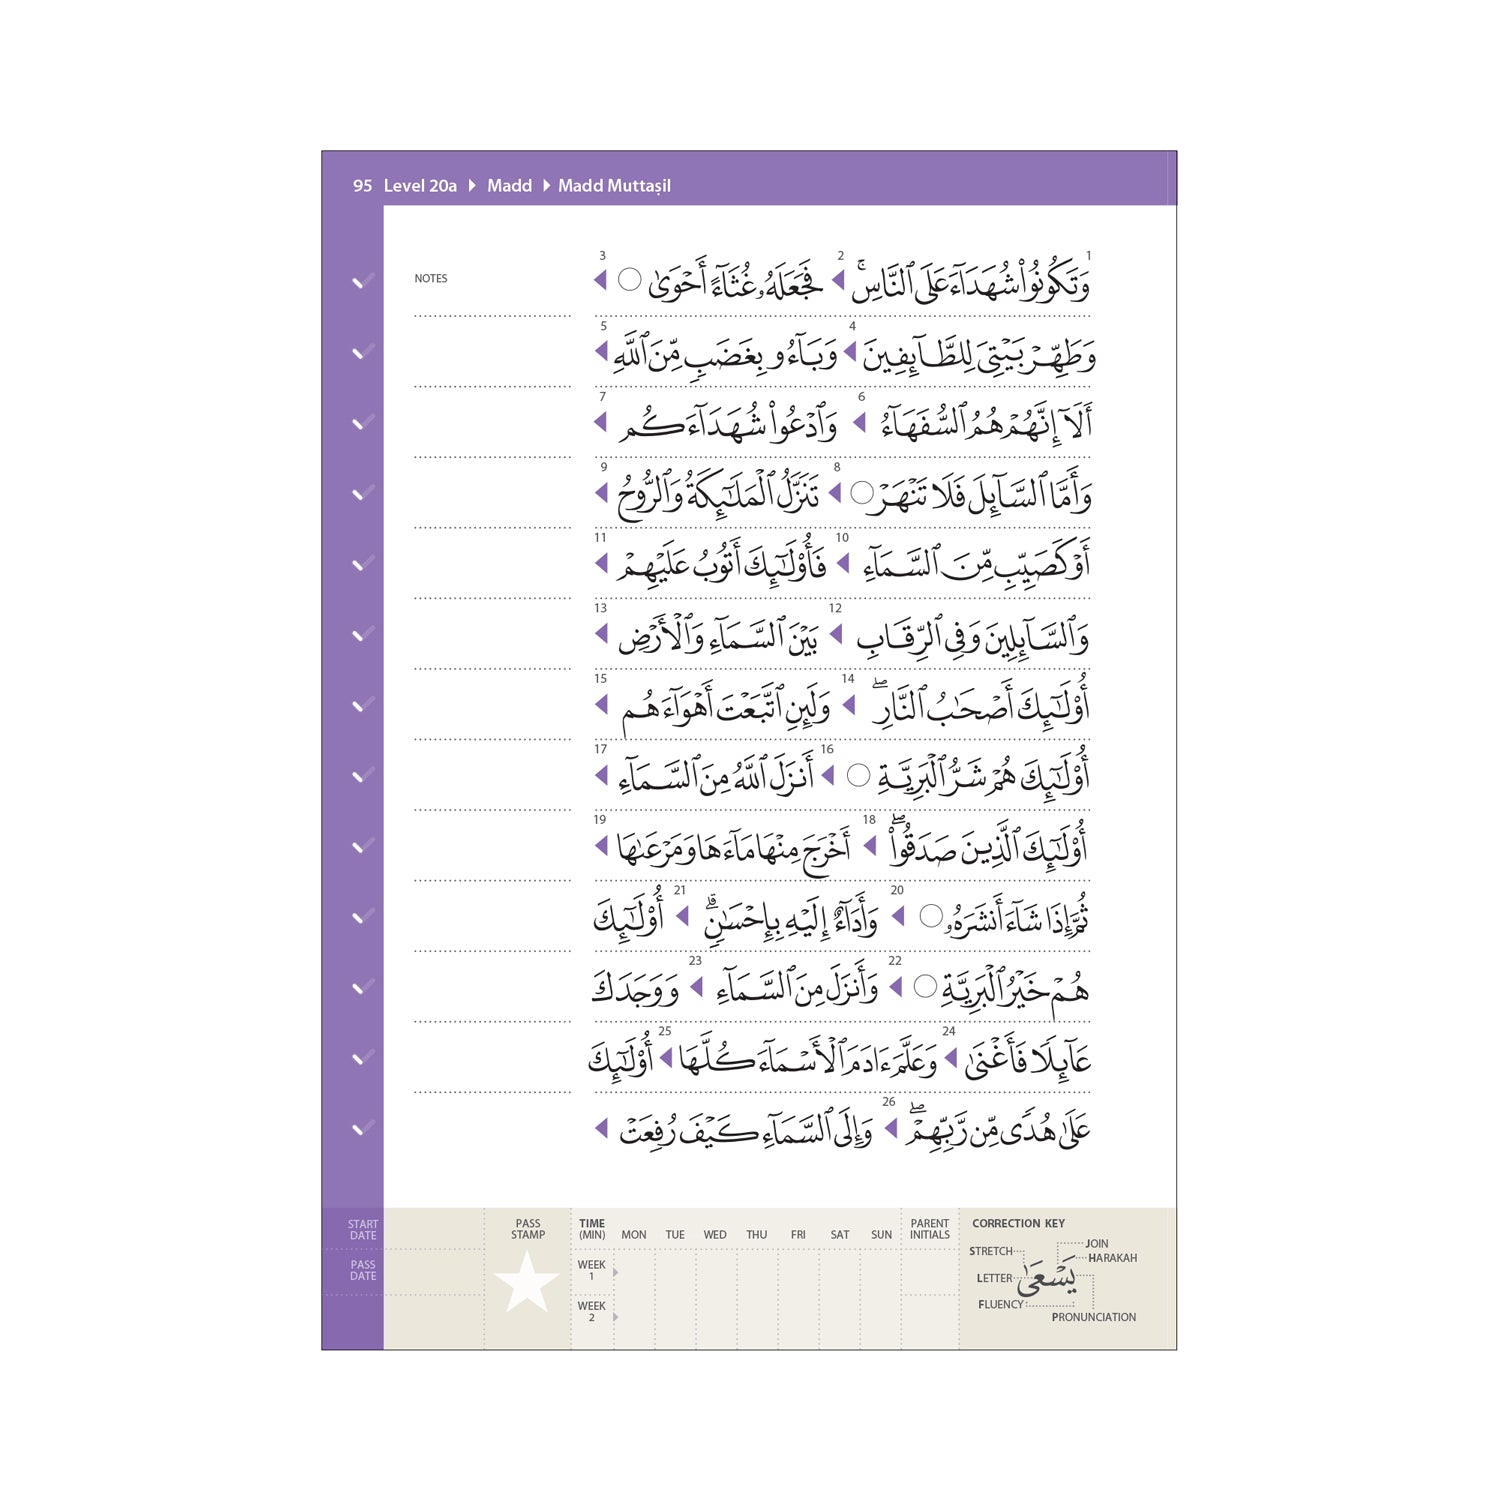 95 Level 20a ▶ Madd ▶ Madd Muttaṣil
NOTES
1 2 3
وَتَكُونُوا۟ شُهَدَآءَ عَلَى ٱلنَّاسِ ۚ ◀ فَجَعَلَهُۥ غُثَآءً أَحْوَىٰ ○ ◀
4 5
وَطَهِّرْ بَيْتِىَ لِلطَّآئِفِينَ ◀ وَبَآءُو بِغَضَبٍ مِّنَ ٱللَّهِ ◀
6 7
أَلَآ إِنَّهُمْ هُمُ ٱلسُّفَهَآءُ ◀ وَٱدْعُوا۟ شُهَدَآءَكُم ◀
8 9
وَأَمَّا ٱلسَّآئِلَ فَلَا تَنْهَرْ ○ ◀ تَنَزَّلُ ٱلْمَلَـٰٓئِكَةُ وَٱلرُّوحُ ◀
10 11
أَوْ كَصَيِّبٍ مِّنَ ٱلسَّمَآءِ ◀ فَأُو۟لَـٰٓئِكَ أَتُوبُ عَلَيْهِمْ ◀
12 13
وَٱلسَّآئِلِينَ وَفِى ٱلرِّقَابِ ◀ بَيْنَ ٱلسَّمَآءِ وَٱلْأَرْضِ ◀
14 15
أُو۟لَـٰٓئِكَ أَصْحَـٰبُ ٱلنَّارِ ۖ ◀ وَلَئِنِ ٱتَّبَعْتَ أَهْوَآءَهُم ◀
16 17
أُو۟لَـٰٓئِكَ هُمْ شَرُّ ٱلْبَرِيَّةِ ○ ◀ أَنزَلَ ٱللَّهُ مِنَ ٱلسَّمَآءِ ◀
18 19
أُو۟لَـٰٓئِكَ ٱلَّذِينَ صَدَقُوا۟ ۖ ◀ أَخْرَجَ مِنْهَا مَآءَهَا وَمَرْعَىٰهَا ◀
20 21
ثُمَّ إِذَا شَآءَ أَنشَرَهُۥ ○ ◀ وَأَدَآءٌ إِلَيْهِ بِإِحْسَـٰنٍ ۗ ◀ أُو۟لَـٰٓئِكَ
22 23
هُمْ خَيْرُ ٱلْبَرِيَّةِ ○ ◀ وَأَنزَلَ مِنَ ٱلسَّمَآءِ ◀ وَوَجَدَكَ
24 25
عَآئِلًا فَأَغْنَىٰ ◀ وَعَلَّمَ ءَادَمَ ٱلْأَسْمَآءَ كُلَّهَا ◀ أُو۟لَـٰٓئِكَ
26
عَلَىٰ هُدًى مِّن رَّبِّهِمْ ۖ ◀ وَإِلَى ٱلسَّمَآءِ كَيْفَ رُفِعَتْ ◀
START DATE
PASS DATE
PASS STAMP
TIME (MIN) MON TUE WED THU FRI SAT SUN PARENT INITIALS
WEEK 1
WEEK 2
CORRECTION KEY
JOIN
STRETCH
HARAKAH
يَسْعَىٰ
LETTER
FLUENCY
PRONUNCIATION